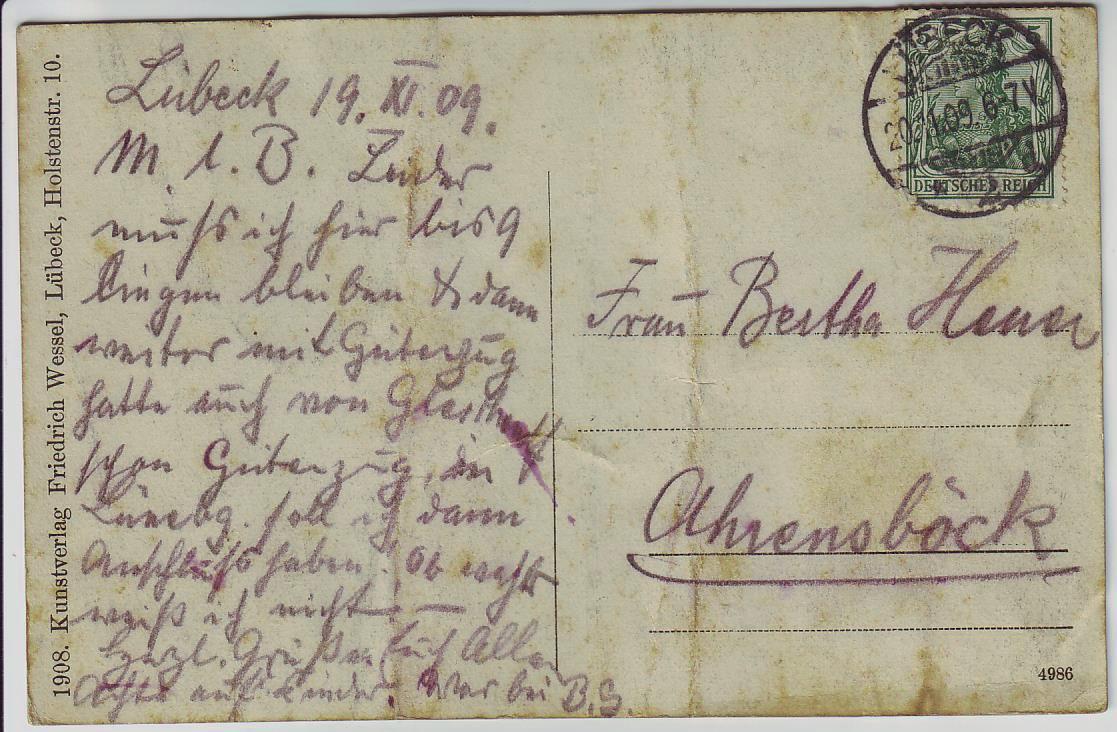 1908. Kunstverlag Friedrich Wessel, Lübeck, Holstenstr. 10.
Lübeck 19. XI. 09.
M. l. B. Leider
muß ich hier bis 9
liegen bleiben & dann
weiter mit Güterzug
hatte auch von
schon Güterzug, in
Lünebg. soll ich dann
Anschluß haben. Ob
weiß ich nicht! —
Herzl. Grüße Euch Allen
Achte auf Kinder. War bei B.S.
LÜBECK
20. 11.09. 6-7 V.
DEUTSCHES REICH
Frau Bertha
Ahrensböck
4986